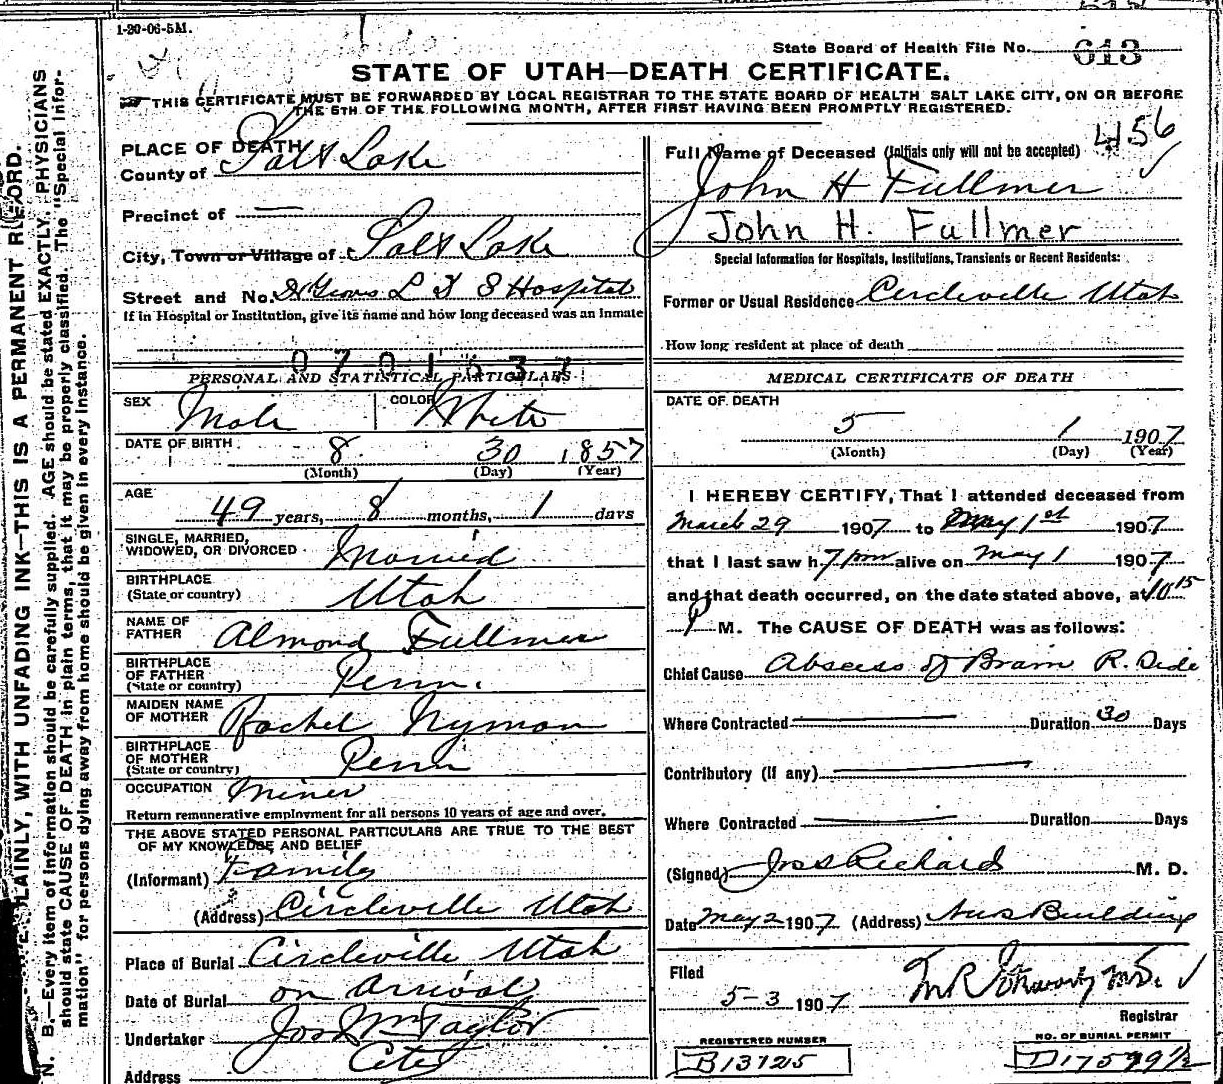 1-20-06-5M.
State Board of Health File No. 613
STATE OF UTAH—DEATH CERTIFICATE.
THIS CERTIFICATE MUST BE FORWARDED BY LOCAL REGISTRAR TO THE STATE BOARD OF HEALTH SALT LAKE CITY, ON OR BEFORE
THE 5TH OF THE FOLLOWING MONTH, AFTER FIRST HAVING BEEN PROMPTLY REGISTERED.
PLACE OF DEATH
County of Salt Lake
Precinct of —
City, Town or Village of Salt Lake
Street and No. L D S Hospital
If in Hospital or Institution, give its name and how long deceased was an Inmate
0701637
PERSONAL AND STATISTICAL PARTICULARS
SEX Male COLOR White
DATE OF BIRTH 8 30 1857
(Month) (Day) (Year)
AGE 49 years, 8 months, 1 days
SINGLE, MARRIED,
WIDOWED, OR DIVORCED Married
BIRTHPLACE
(State or country) Utah
NAME OF
FATHER Almond Fullmer
BIRTHPLACE
OF FATHER
(State or country) Penn.
MAIDEN NAME
OF MOTHER Rachel Nyman
BIRTHPLACE
OF MOTHER
(State or country) Penn
OCCUPATION Miner
Return remunerative employment for all persons 10 years of age and over.
THE ABOVE STATED PERSONAL PARTICULARS ARE TRUE TO THE BEST
OF MY KNOWLEDGE AND BELIEF
(Informant) Family
(Address) Circleville Utah
Place of Burial Circleville Utah
Date of Burial on Arrival
Undertaker Jos Wm Taylor
Address City
456
Full Name of Deceased (Initials only will not be accepted)
John H Fullmer
John H. Fullmer
Special Information for Hospitals, Institutions, Transients or Recent Residents:
Former or Usual Residence Circleville Utah
How long resident at place of death
MEDICAL CERTIFICATE OF DEATH
DATE OF DEATH
5 1 1907
(Month) (Day) (Year)
I HEREBY CERTIFY, That I attended deceased from
March 29 1907 to May 1st 1907
that I last saw h 7 pm alive on May 1 1907
and that death occurred, on the date stated above, at 10 15
P M. The CAUSE OF DEATH was as follows:
Chief Cause Abscess of Brain R. Side
Where Contracted Duration 30 Days
Contributory (if any)
Where Contracted Duration Days
(Signed) Richards M. D.
Date May 2 1907 (Address) News Building
Filed
5-3 1907
Registrar
REGISTERED NUMBER
B13125
NO. OF BURIAL PERMIT
D17599½
PLAINLY, WITH UNFADING INK—THIS IS A PERMANENT RECORD.
N. B.—Every item of information should be carefully supplied. AGE should be stated EXACTLY. PHYSICIANS
should state CAUSE OF DEATH in plain terms, that it may be properly classified. The "Special Infor-
mation" for persons dying away from home should be given in every instance.